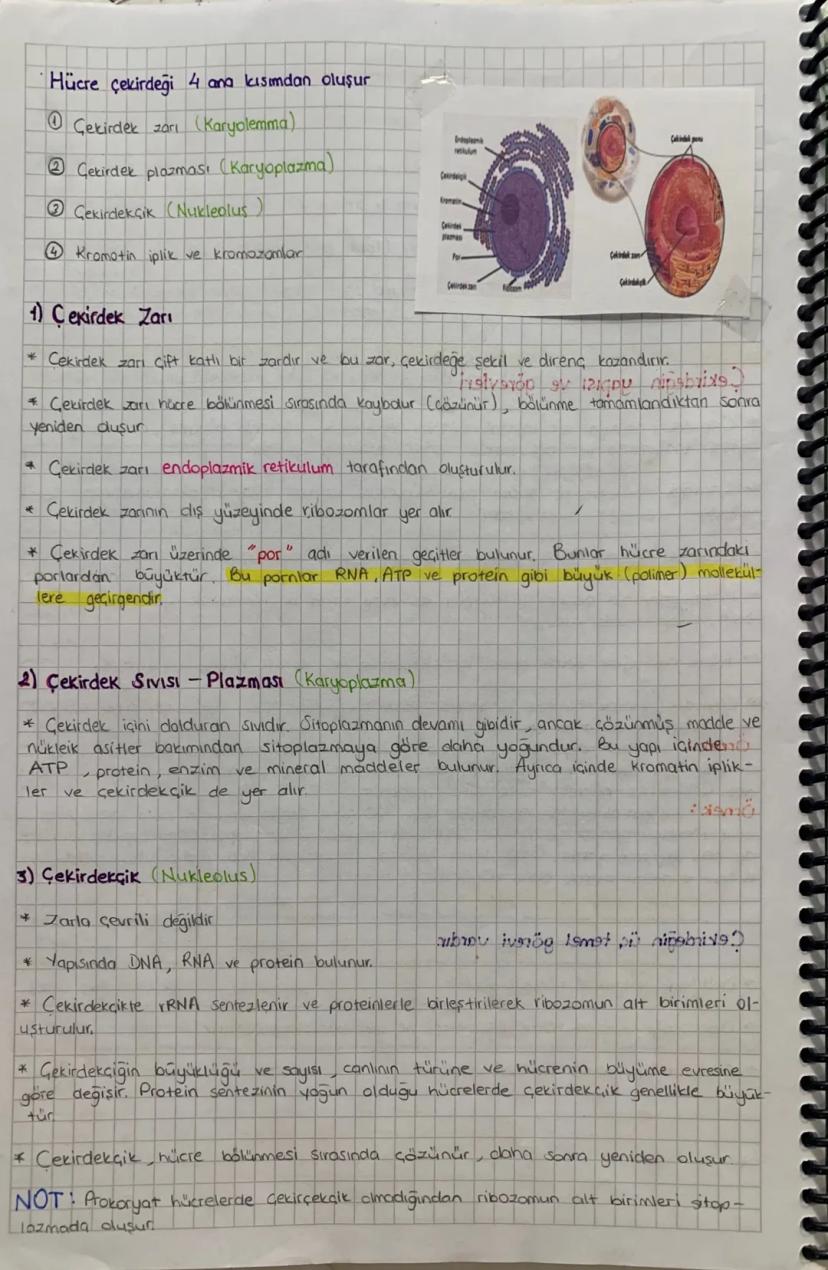 Hücre çekirdeği 4 ana kısımdan oluşur
① Çekirdek zarı (Karyolemma)
② Çekirdek plazması (Karyoplazma)
③ Çekirdekçik (Nukleolus)
④ Kromotin iplik ve kromozomlar
Endoplazmik retikulum
Çekirdekçik
Kromatin
Çekirdek plazması
Por
Çekirdek zarı
Ribozom
Çekirdek poru
Çekirdek zarı
Çekirdekçik
1) Çekirdek Zarı
* Çekirdek zarı çift katlı bir zardır ve bu zar, çekirdeğe şekil ve direnç kazandırır.
* Çekirdek zarı hücre bölünmesi sırasında kaybolur (çözünür), bölünme tamamlandıktan sonra
yeniden oluşur
* Çekirdek zarı endoplazmik retikulum tarafından oluşturulur.
* Çekirdek zarının dış yüzeyinde ribozomlar yer alır
* Çekirdek zarı üzerinde "por" adı verilen geçitler bulunur. Bunlar hücre zarındaki
porlardan büyüktür. Bu pornlar RNA, ATP ve protein gibi büyük (polimer) mollekül-
lere geçirgendir.
2) Çekirdek Sıvısı - Plazması (Karyoplazma)
* Çekirdek içini dolduran sıvıdır. Sitoplazmanın devamı gibidir, ancak çözünmüş madde ve
nükleik asitler bakımından sitoplazmaya göre daha yoğundur. Bu yapı içinde
ATP, protein, enzim ve mineral maddeler bulunur. Ayrıca içinde kromatin iplik-
ler ve çekirdekçik de yer alır.
3) Çekirdekçik (Nukleolus)
* Zarla çevrili değildir
* Yapısında DNA, RNA ve protein bulunur.
* Çekirdekçikte rRNA sentezlenir ve proteinlerle birleştirilerek ribozomun alt birimleri ol-
uşturulur.
* Çekirdekçiğin büyüklüğü ve sayısı, canlının türüne ve hücrenin büyüme evresine
göre değişir. Protein sentezinin yoğun olduğu hücrelerde çekirdekçik genellikle büyük-
tür
* Çekirdekçik, hücre bölünmesi sırasında çözünür, daha sonra yeniden oluşur.
NOT: Prokoryat hücrelerde çekirçekçik olmadığından ribozomun alt birimleri sitop-
lazmada oluşur.